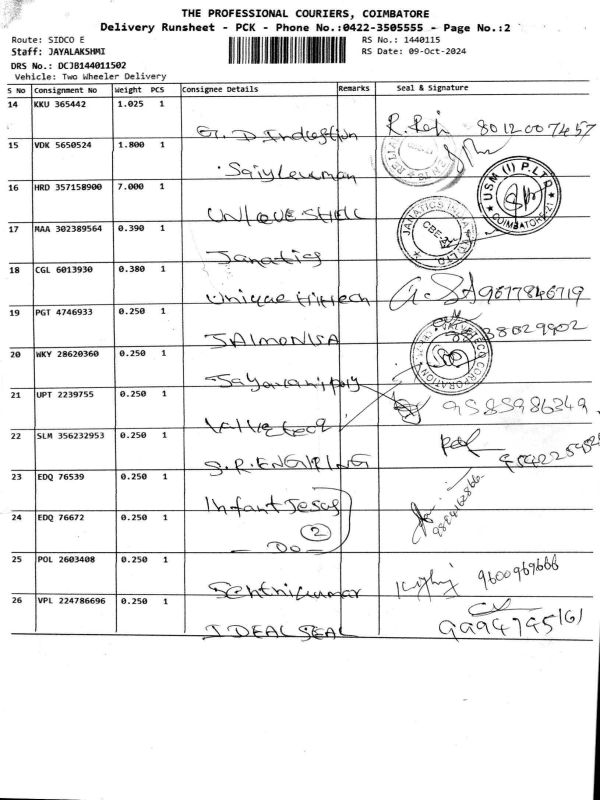 THE PROFESSIONAL COURIERS, COIMBATORE
Delivery Runsheet - PCK - Phone No.:0422-3505555 - Page No.:2
Route: SIDCO E
RS No.: 1440115
Staff: JAYALAKSHMI
RS Date: 09-Oct-2024
DRS No.: DCJB144011502
Vehicle: Two Wheeler Delivery
S No Consignment No Weight PCS Consignee Details Remarks Seal & Signature
14 KKU 365442 1.025 1
8012007457
15 VDK 5650524 1.800 1
16 HRD 357158900 7.000 1
USM (I) P.LTD COIMBATORE-21
UNIQUE SHELL
17 MAA 302389564 0.390 1
JANATICS INDIA P LTD. CBE-21
Janatics
18 CGL 6013930 0.380 1
Unique Hitech 9677846719
19 PGT 4746933 0.250 1
SALMONISA
20 WKY 28620360 0.250 1
VALVETECQ CORPORATION
21 UPT 2239755 0.250 1
9585986349
Valvetecq
22 SLM 356232953 0.250 1
S.R. ENGIRING
23 EDQ 76539 0.250 1
Infant Jesus
2
24 EDQ 76672 0.250 1
- Do -
25 POL 2603408 0.250 1
9600969666
Senthilkumar
26 VPL 224786696 0.250 1
IDEAL SEAL